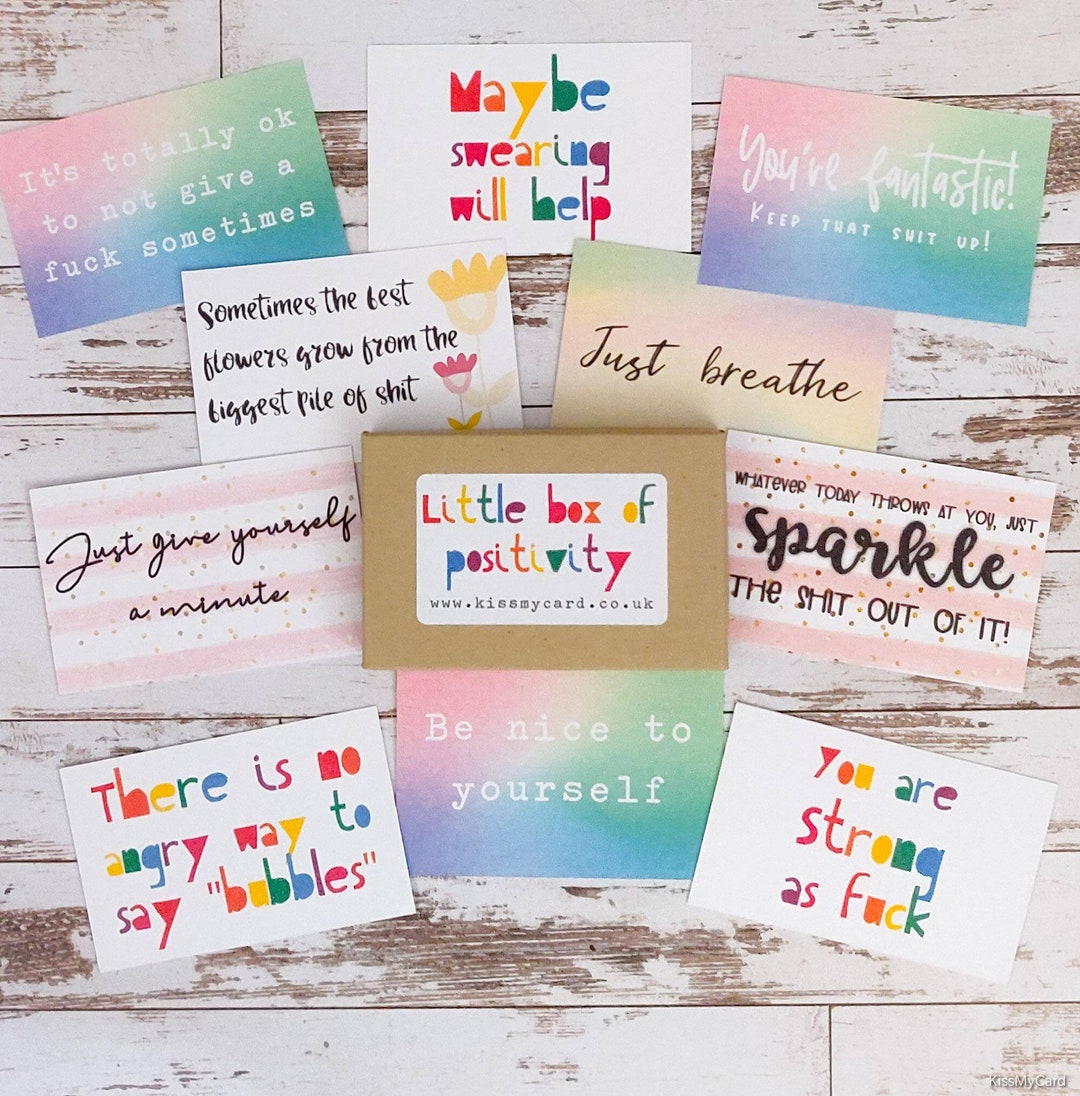 It's totally ok
to not give a
fuck sometimes
Maybe
swearing
will help
You're fantastic!
KEEP THAT SHIT UP!
Sometimes the best
flowers grow from the
biggest pile of shit
Just breathe
Just give yourself
a minute
Little box of
positivity
www.kissmycard.co.uk
WHATEVER TODAY THROWS AT YOU, JUST
sparkle
THE SHIT OUT OF IT!
There is no
angry way to
say "bubbles"
Be nice to
yourself
You are
strong
as fuck
KissMyCard